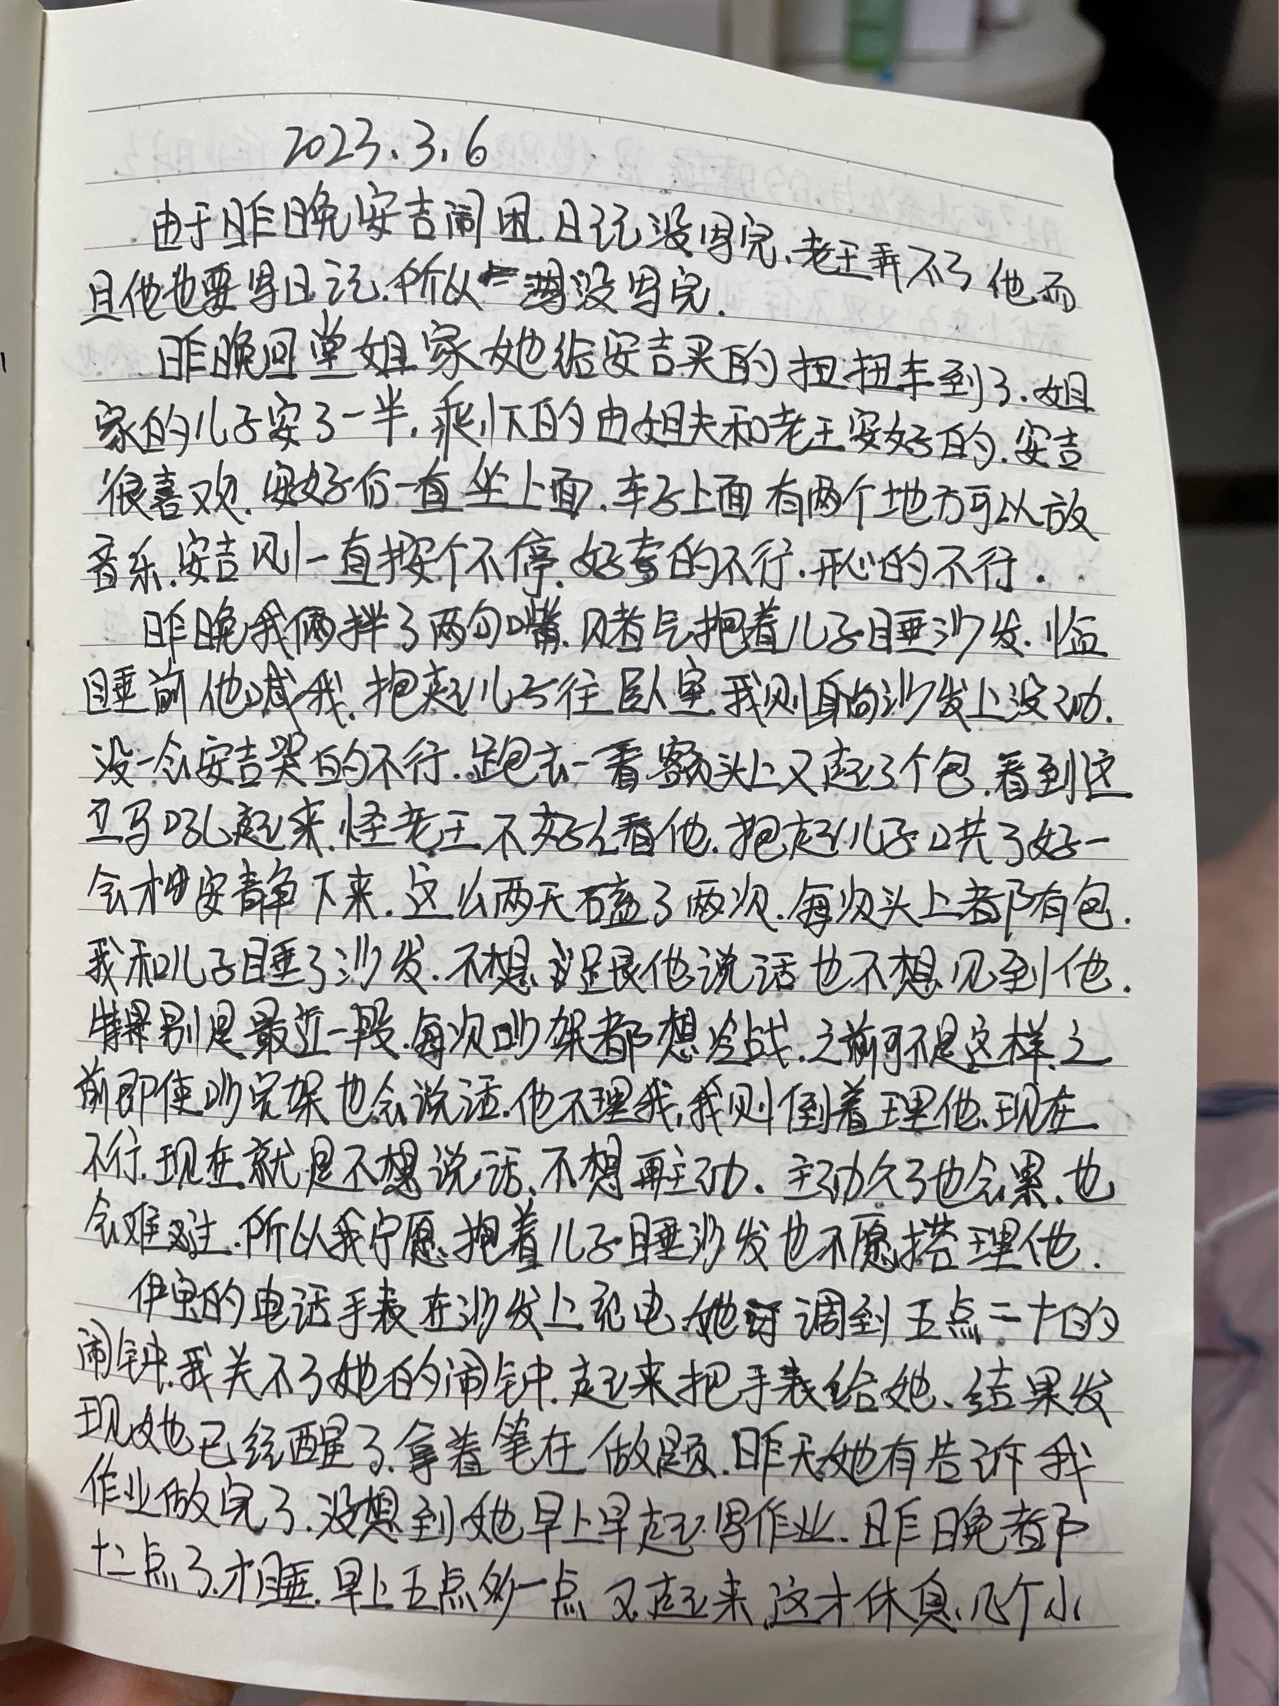 2023.3.6
由于昨晚安吉闹困.日记没写完.老王弄不了他而
且他也要写日记.所以没写完.
昨晚回堂姐家她给安吉买的扭扭车到了.姐
家的儿子安了一半.剩下的由姐夫和老王安好的.安吉
很喜欢.安好后一直坐上面.车子上面有两个地方可以放
音乐.安吉则一直按个不停.好奇的不行.开心的不行.
昨晚我俩拌了两句嘴.赌气抱着儿子睡沙发.临
睡前他喊我.抱起儿子往卧室.我则躺沙发上没动.
没一会安吉哭的不行.跑去一看额头上又起了个包.看到这
立马吼起来.怪老王不好好看他.抱起儿子哄了好一
会才安静下来.这么两天磕了两次.每次头上都有包.
我和儿子睡了沙发.不想跟他说话也不想见到他.
特别是最近一段.每次吵架都想冷战.之前可不是这样.之
前即使吵完架也会说话.他不理我,我则倒着理他.现在
不行.现在就是不想说话、不想再主动.主动久了也会累.也
会难过.所以我宁愿抱着儿子睡沙发也不愿搭理他.
伊宝的电话手表在沙发上充电.她调到五点二十的
闹钟.我关不了她的闹钟.起来把手表给她、结果发
现她已经醒了.拿着笔在做题.昨天她有告诉我
作业做完了.没想到她早上早起写作业.昨晚都
十二点了.才睡.早上五点多一点又起来.这才休息几个小